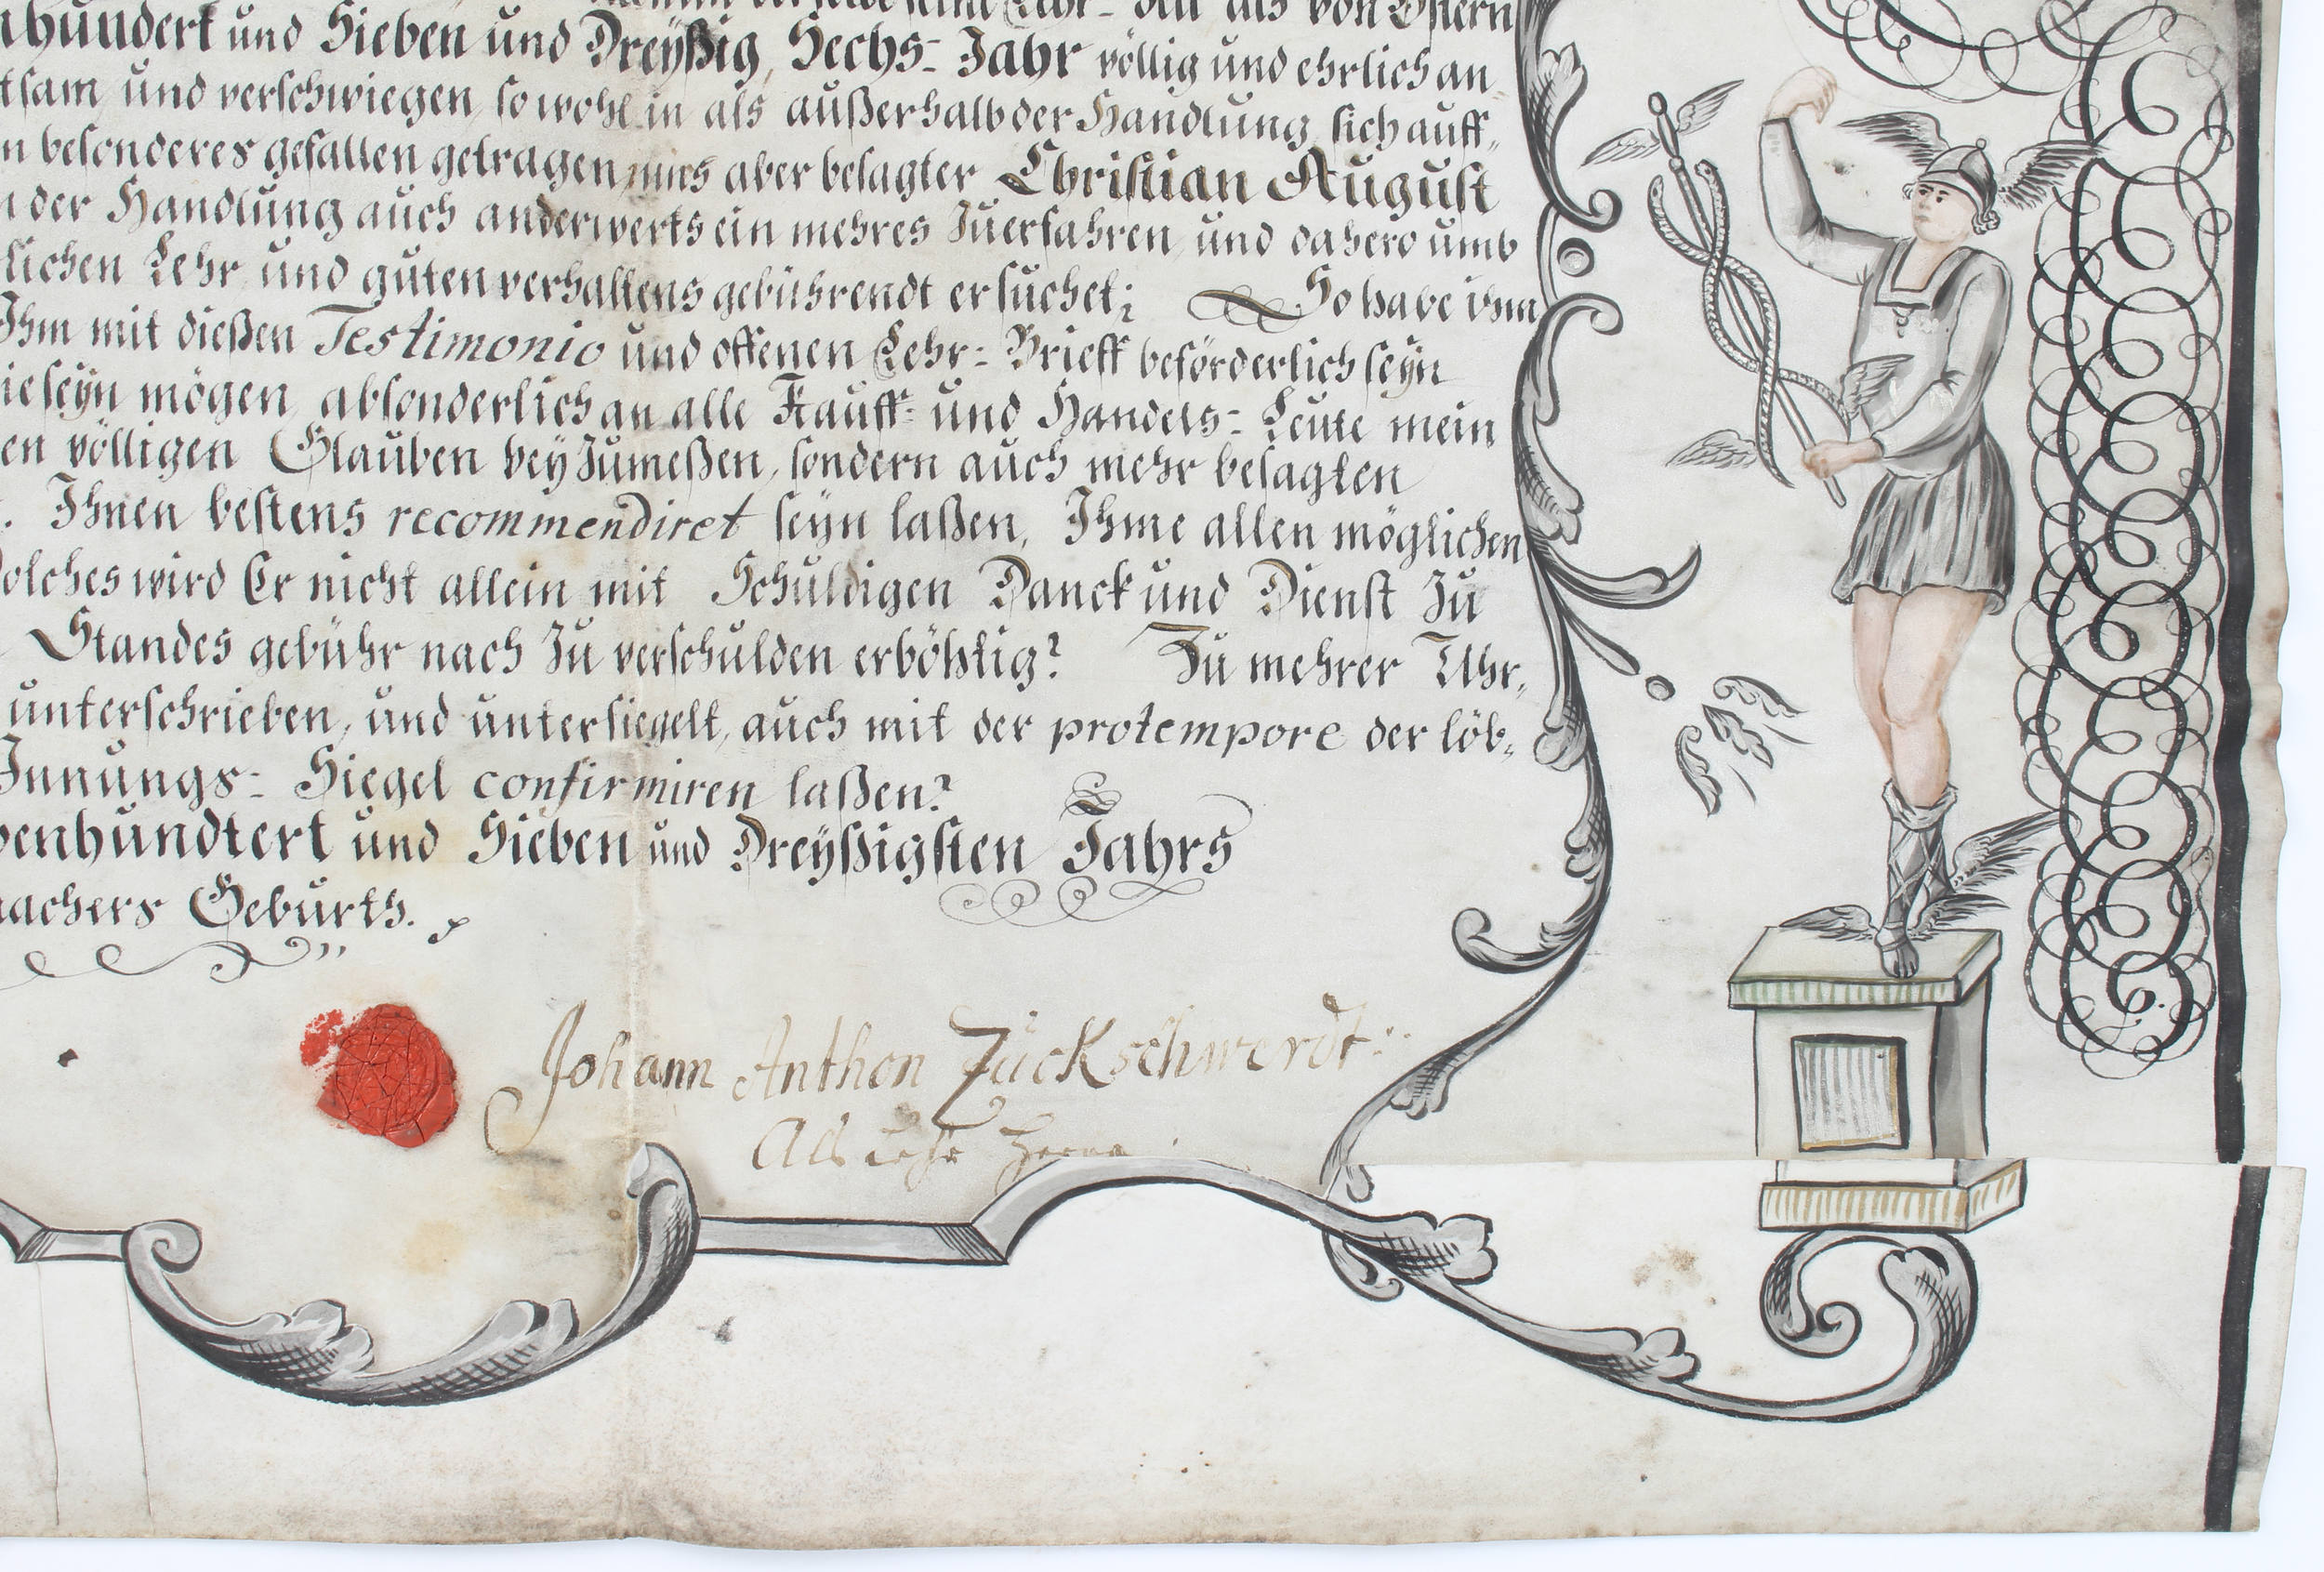 Lehr- als von Ostern
hundert und Sieben und Dreÿßig, Sechs- Jahr völlig und ehrlich an
tsam, und verschwiegen, so wohl in als außerhalb der Handlung, sich auff„
n besonderes gefallen getragen, aber besagter Christian August
der Handlung auch anderwerts ein mehres Zuerfahren, und dahero umb
lichen Lehr und guten verhaltens gebührendt ersuchet; So habe ihm
Ihm mit dießen Testimonio und offenen Lehr- Brieff beförderlich seÿn
ie seÿn mögen, absonderlich an alle Kauff- und Handels- Leute mein
en völligen Glauben beÿ Zumeßen, sondern auch mehr besagten
. Ihnen bestens recommendiret seÿn laßen, Ihme allen möglichen
Solches wird Er nicht allein mit Schuldigen Danck und Dienst Zu
Standes gebühr nach Zu verschulden erböhtig? Zu mehrer Uhr„
unterschrieben, und untersiegelt, auch mit der protempore der löb„
Innungs- Siegel confirmiren laßen?
benhundtert und Sieben und Dreÿßigsten Jahrs
machers Geburth.
Johann Anthon Zückschwerdt
Als Lehr Herr